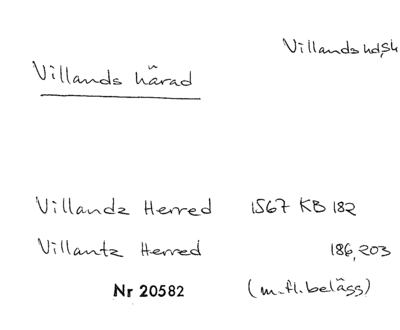 Villands hd, Sk
Villands härad
Villandz Herred 1567 KB 182
Villantz Herred 186, 203
Nr 20582 (m.fl. belägg)